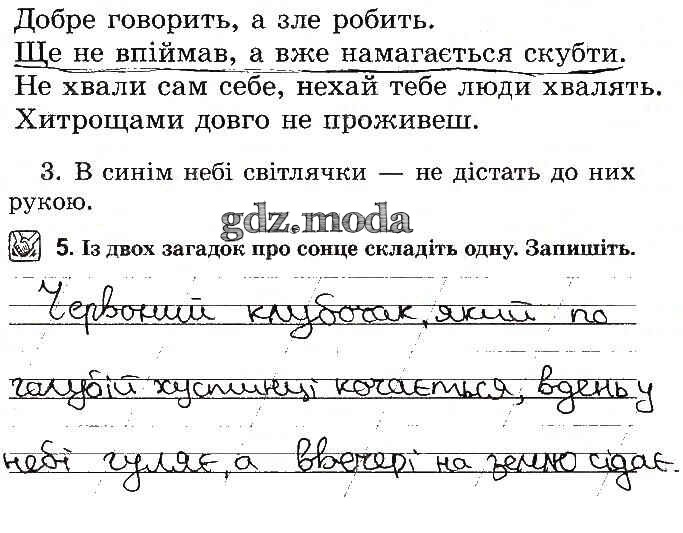 Добре говорить, а зле робить.
Ще не впіймав, а вже намагається скубти.
Не хвали сам себе, нехай тебе люди хвалять.
Хитрощами довго не проживеш.
3. В синім небі світлячки — не дістать до них
рукою.
gdz.moda
5. Із двох загадок про сонце складіть одну. Запишіть.
Червоний клубочак, який по
галубій хустинці качається, вдень у
небі гуляє, а ввечері на землю сідає.